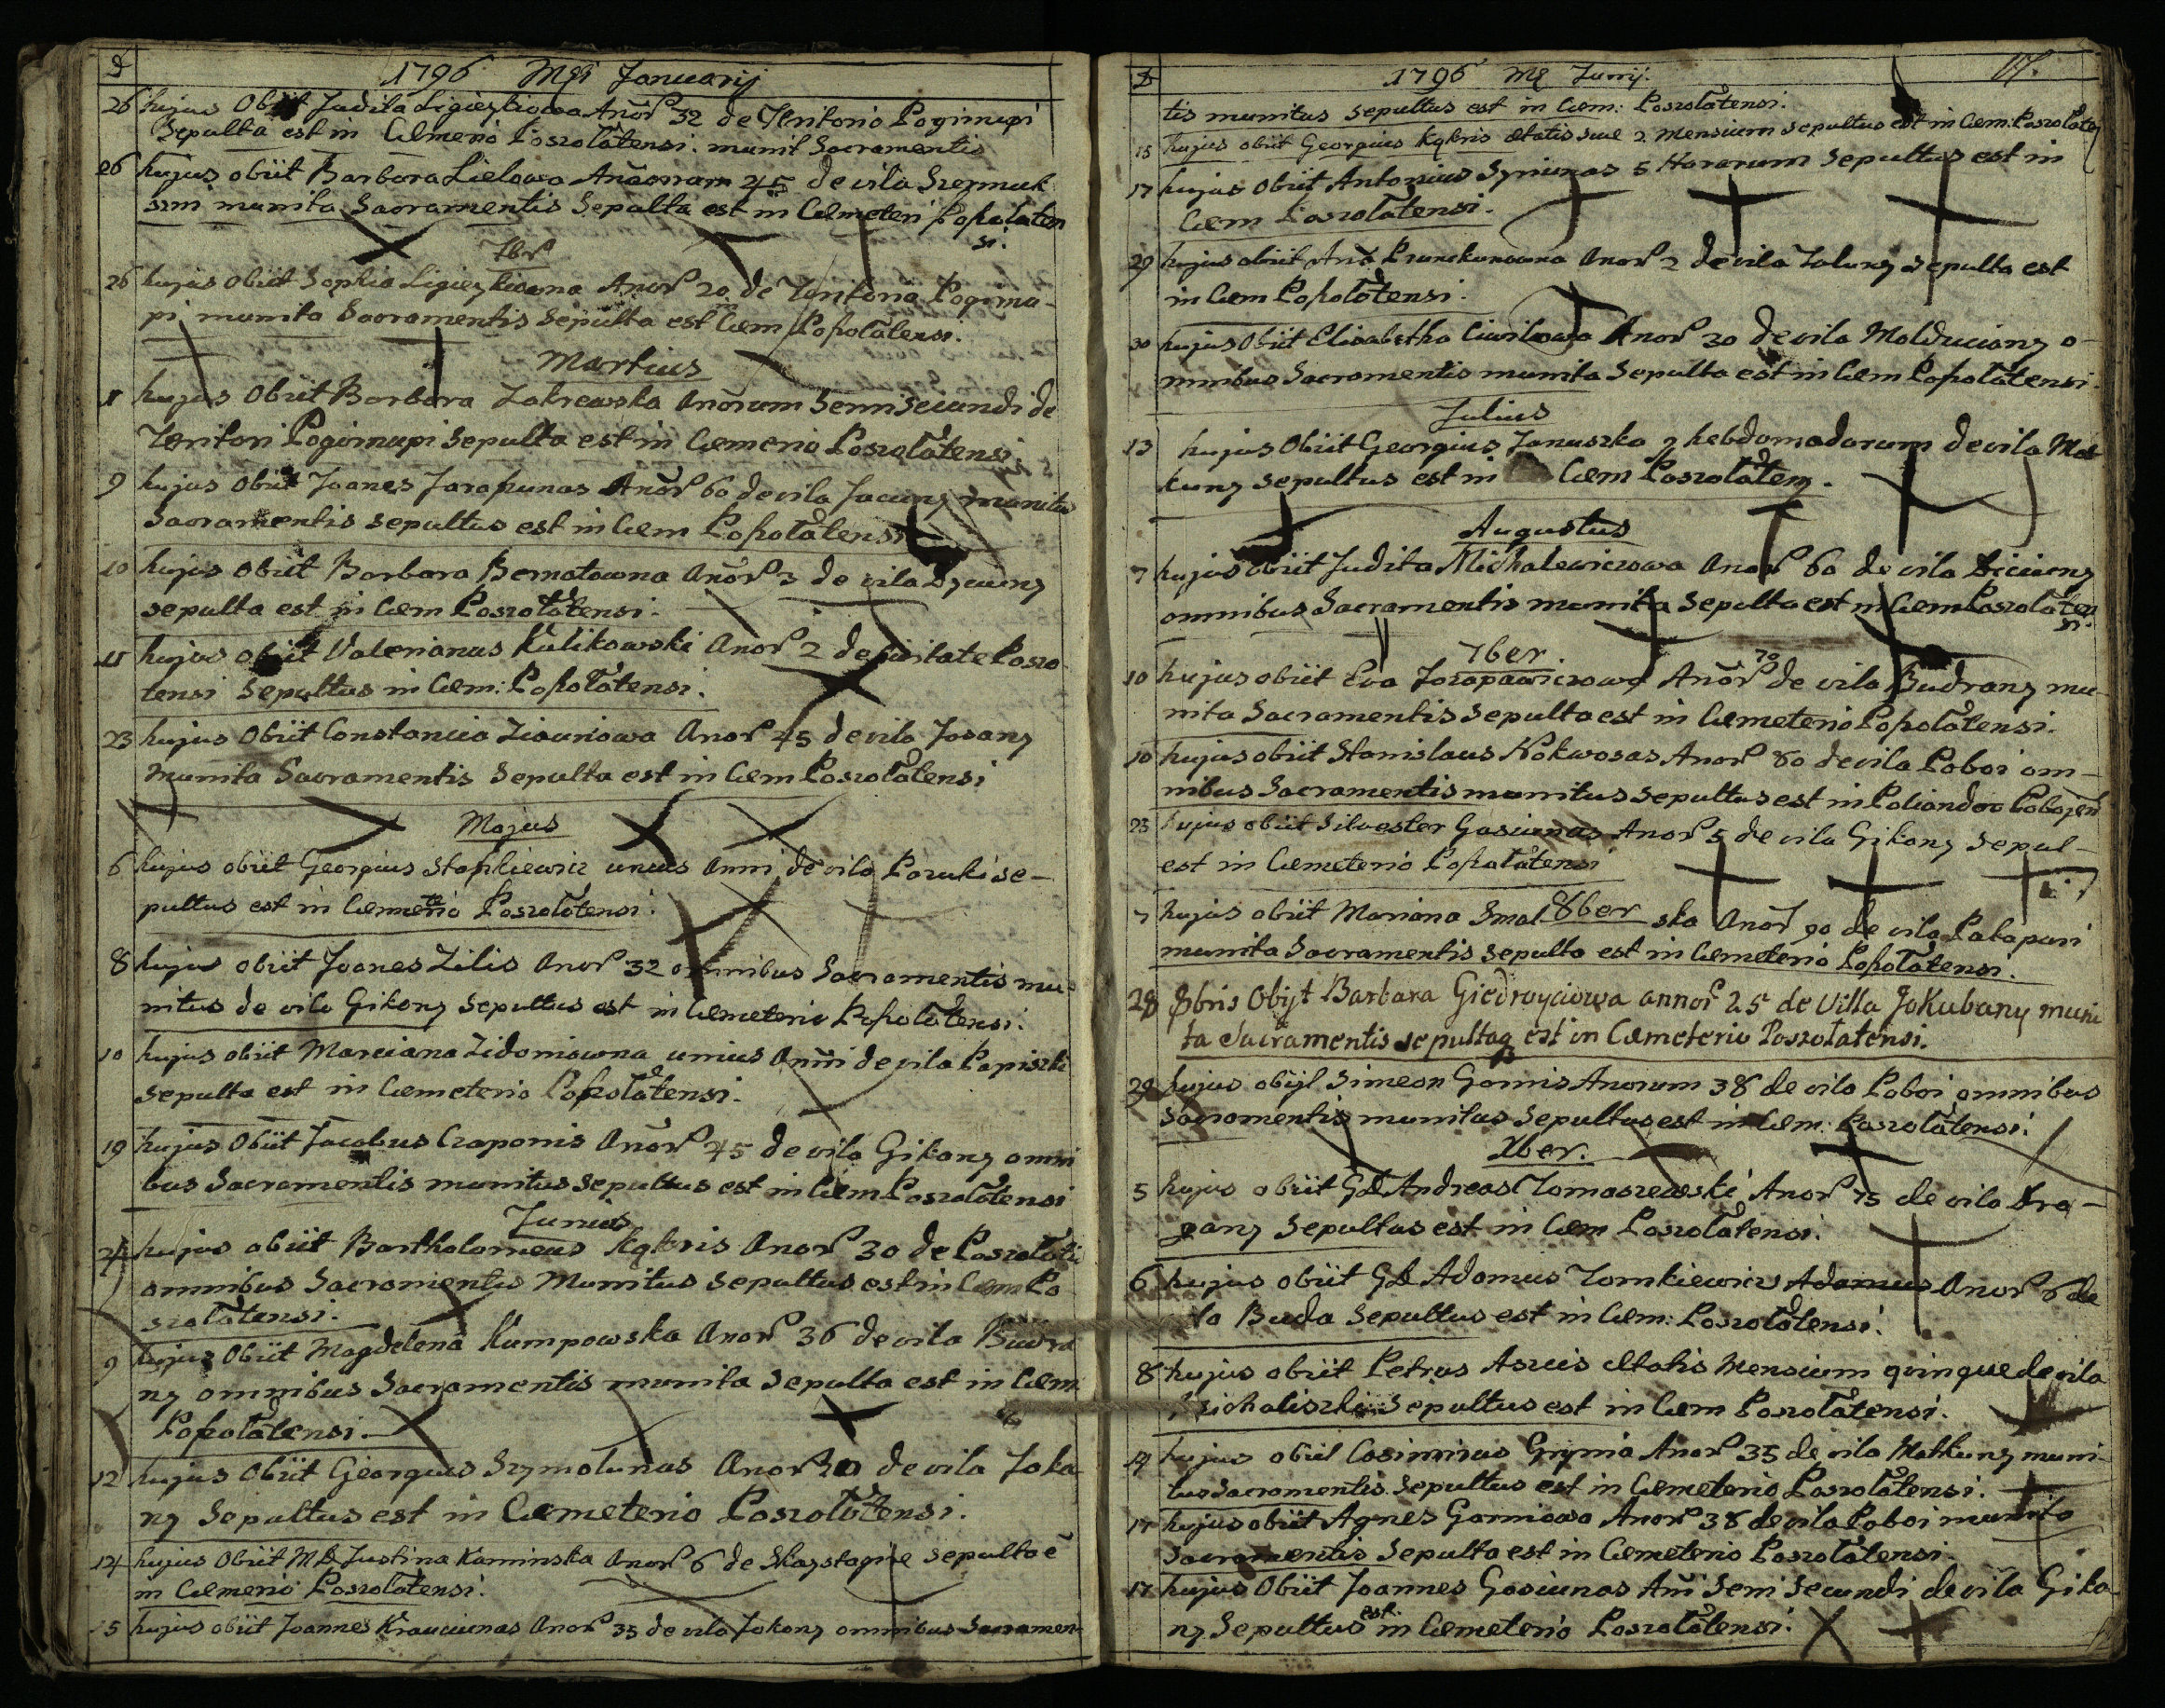 D 1796 Msi Januarij
26 hujus Obiit Judita Ligieykiowa Anor 32 de Teritorio Poginupi
Sepulta est in Cemerio Poszołatensi. munit Sacramentis
26 hujus obiit Barbara Lielowa Anorum 45 de vila Szermuk
szni munita Sacramentis Sepulta est in Cemeteri Poszołaten
si.
26 hujus obiit Sophia Anor 20 de Teritorio Poginu-
pi munita Sacramentis Sepulta est in Cem Poszołatensi.
Martius
hujus Obiit Barbara Zakrewska Anorum Semisecundi de
Teritori Poginupi Sepulta est in Cemerio Poszołatensi.
9 hujus obiit Joanes Jarapunas Anor 60 de vila munitus
Sacramentis sepultus est in Cem Poszołatensi
10 hujus obiit Barbara Bernatowna Anor 3 de vila
sepulta est in Cem Poszołatensi.
15 hujus obiit Valerianus Kulikowski Anor 2 de civitate Poszo-
tensi Sepultus in Cem: Poszołatensi.
23 hujus Obiit Constancia Ziauniowa Anor 45 de vila Josany
Munita Sacramentis Sepulta est in Cem Poszołatensi
Majus
6 hujus obiit Georgius Stapkiewicz unius Anni de vila Paruki se-
pultus est in Cemeterio Poszołatensi.
8 hujus obiit Joanes Zilis Anor 32 omnibus Sacramentis mu-
nitus de vila Gikany Sepultus est in Cemeterio Poszołatensi.
10 hujus obiit Marciana Zidoniowna unius Anni de vila Papiszki
Sepulta est in Cemeterio Poszołatensi.
19 hujus Obiit Jacobus Czaponis Anor 45 de vila Gikany omni
bus Sacramentis munitus Sepultus est in Cem Poszołatensi
Junius
4 hujus obiit Bartholomeus Kąkris Anor 30 de Poszołati
omnibus Sacramentis Munitus Sepultus est in Cem Po
szołatensi.
9 hujus Obiit Magdelena Kumpowska Anor 36 de vila Budra
ny omnibus Sacramentis munita Sepulta est in Cem
Poszołatensi.
12 hujus Obiit Georgius Szymolunas Anor de vila Joka
ny Sepultus est in Cemeterio Poszołatensi.
14 hujus Obiit MD Justina Kaminska Anor 6 de Skaystagire sepulta e
in Cemerio Poszołatensi.
15 hujus obiit Joannes Krauciunas Anor 35 de vila Jokany omnibus Sacramen-
D 1796 Ms Junij. 17.
tis munitus Sepultus est in Cem: Poszołatensi.
15 hujus obiit Georgius Kąkris Etatis Sue 2 Mensium Sepultus est in Cem: Poszołaten
17 hujus Obiit Antonius Syriunas 5 Horarum Sepultus est in
Cem Poszołatensi.
29 hujus obiit Ana Prunckunowna Anor 2 de vila Joluny Sepulta est
in Cem Poszołatensi.
30 hujus Obiit Elisabetha Ciwilowa Anor 30 de vila Malduciany o-
mnibus Sacramentis munita Sepulta est in Cem Poszołatensi.
Julius
13 hujus Obiit Georgius Januszka 2 hebdomadarum de vila Mal-
kuny sepultus est in Cem Poszołaten.
Augustus
7 hujus obiit Judita Michalewiczowa Anor 60 de vila
omnibus Sacramentis munita Sepulta est in Cem Poszołaten
si.
7ber.
10 hujus obiit Eva Anor 70 de vila Budrany mu-
nita Sacramentis Sepulta est in Cemeterio Poszołatensi.
10 hujus obiit Stanislaus Kokwosas Anor 80 de vila Poboi om-
nibus Sacramentis munitus sepultus est in Poliandro Pobojen
23 hujus obiit Silvester Gasiunas Anor 5 de vila Gikany Sepul-
est in Cemeterio Poszołatensi
8ber
7 hujus obiit Mariana Smal ska Anor 90 de vila Patapuri
munita Sacramentis sepulta est in Cemeterio Poszołatensi.
28 8bris Obijt Barbara Giedroyciowa annor 25 de Villa Jakubany muni
ta Sacramentis sepulta est in Cemeterio Poszołatensi.
29 hujus obijt Simeon Gornis Anorum 38 de vila Poboi omnibus
Sacramentis munitus Sepultus est in Cem: Poszołatensi.
Xber.
5 hujus obiit GD Andreas Tomaszewski Anor 75 de vila Dra-
gany Sepultus est in Cem Poszołatensi.
6 hujus obiit GD Adamus Tomkiewicz Adamus Anor 6 de
la Buda Sepultus est in Cem: Poszołatensi.
8 hujus obiit Petrus Aszuis Etatis Mensium quinque de vila
Michaliszki Sepultus est in Cem Poszołatensi.
14 hujus obiit Casimirus Grynia Anor 35 de vila Matkuny muni-
tus Sacramentis Sepultus est in Cemeterio Poszołatensi.
17 hujus obiit Agnes Gorniowa Anor 38 de vila Poboi munita
Sacramentis Sepulta est in Cemeterio Poszołatensi.
17 hujus Obiit Joannes Gasiunas Ani Semi Secundi de vila Gika
ny Sepultus est in Cemeterio Poszołatensi.